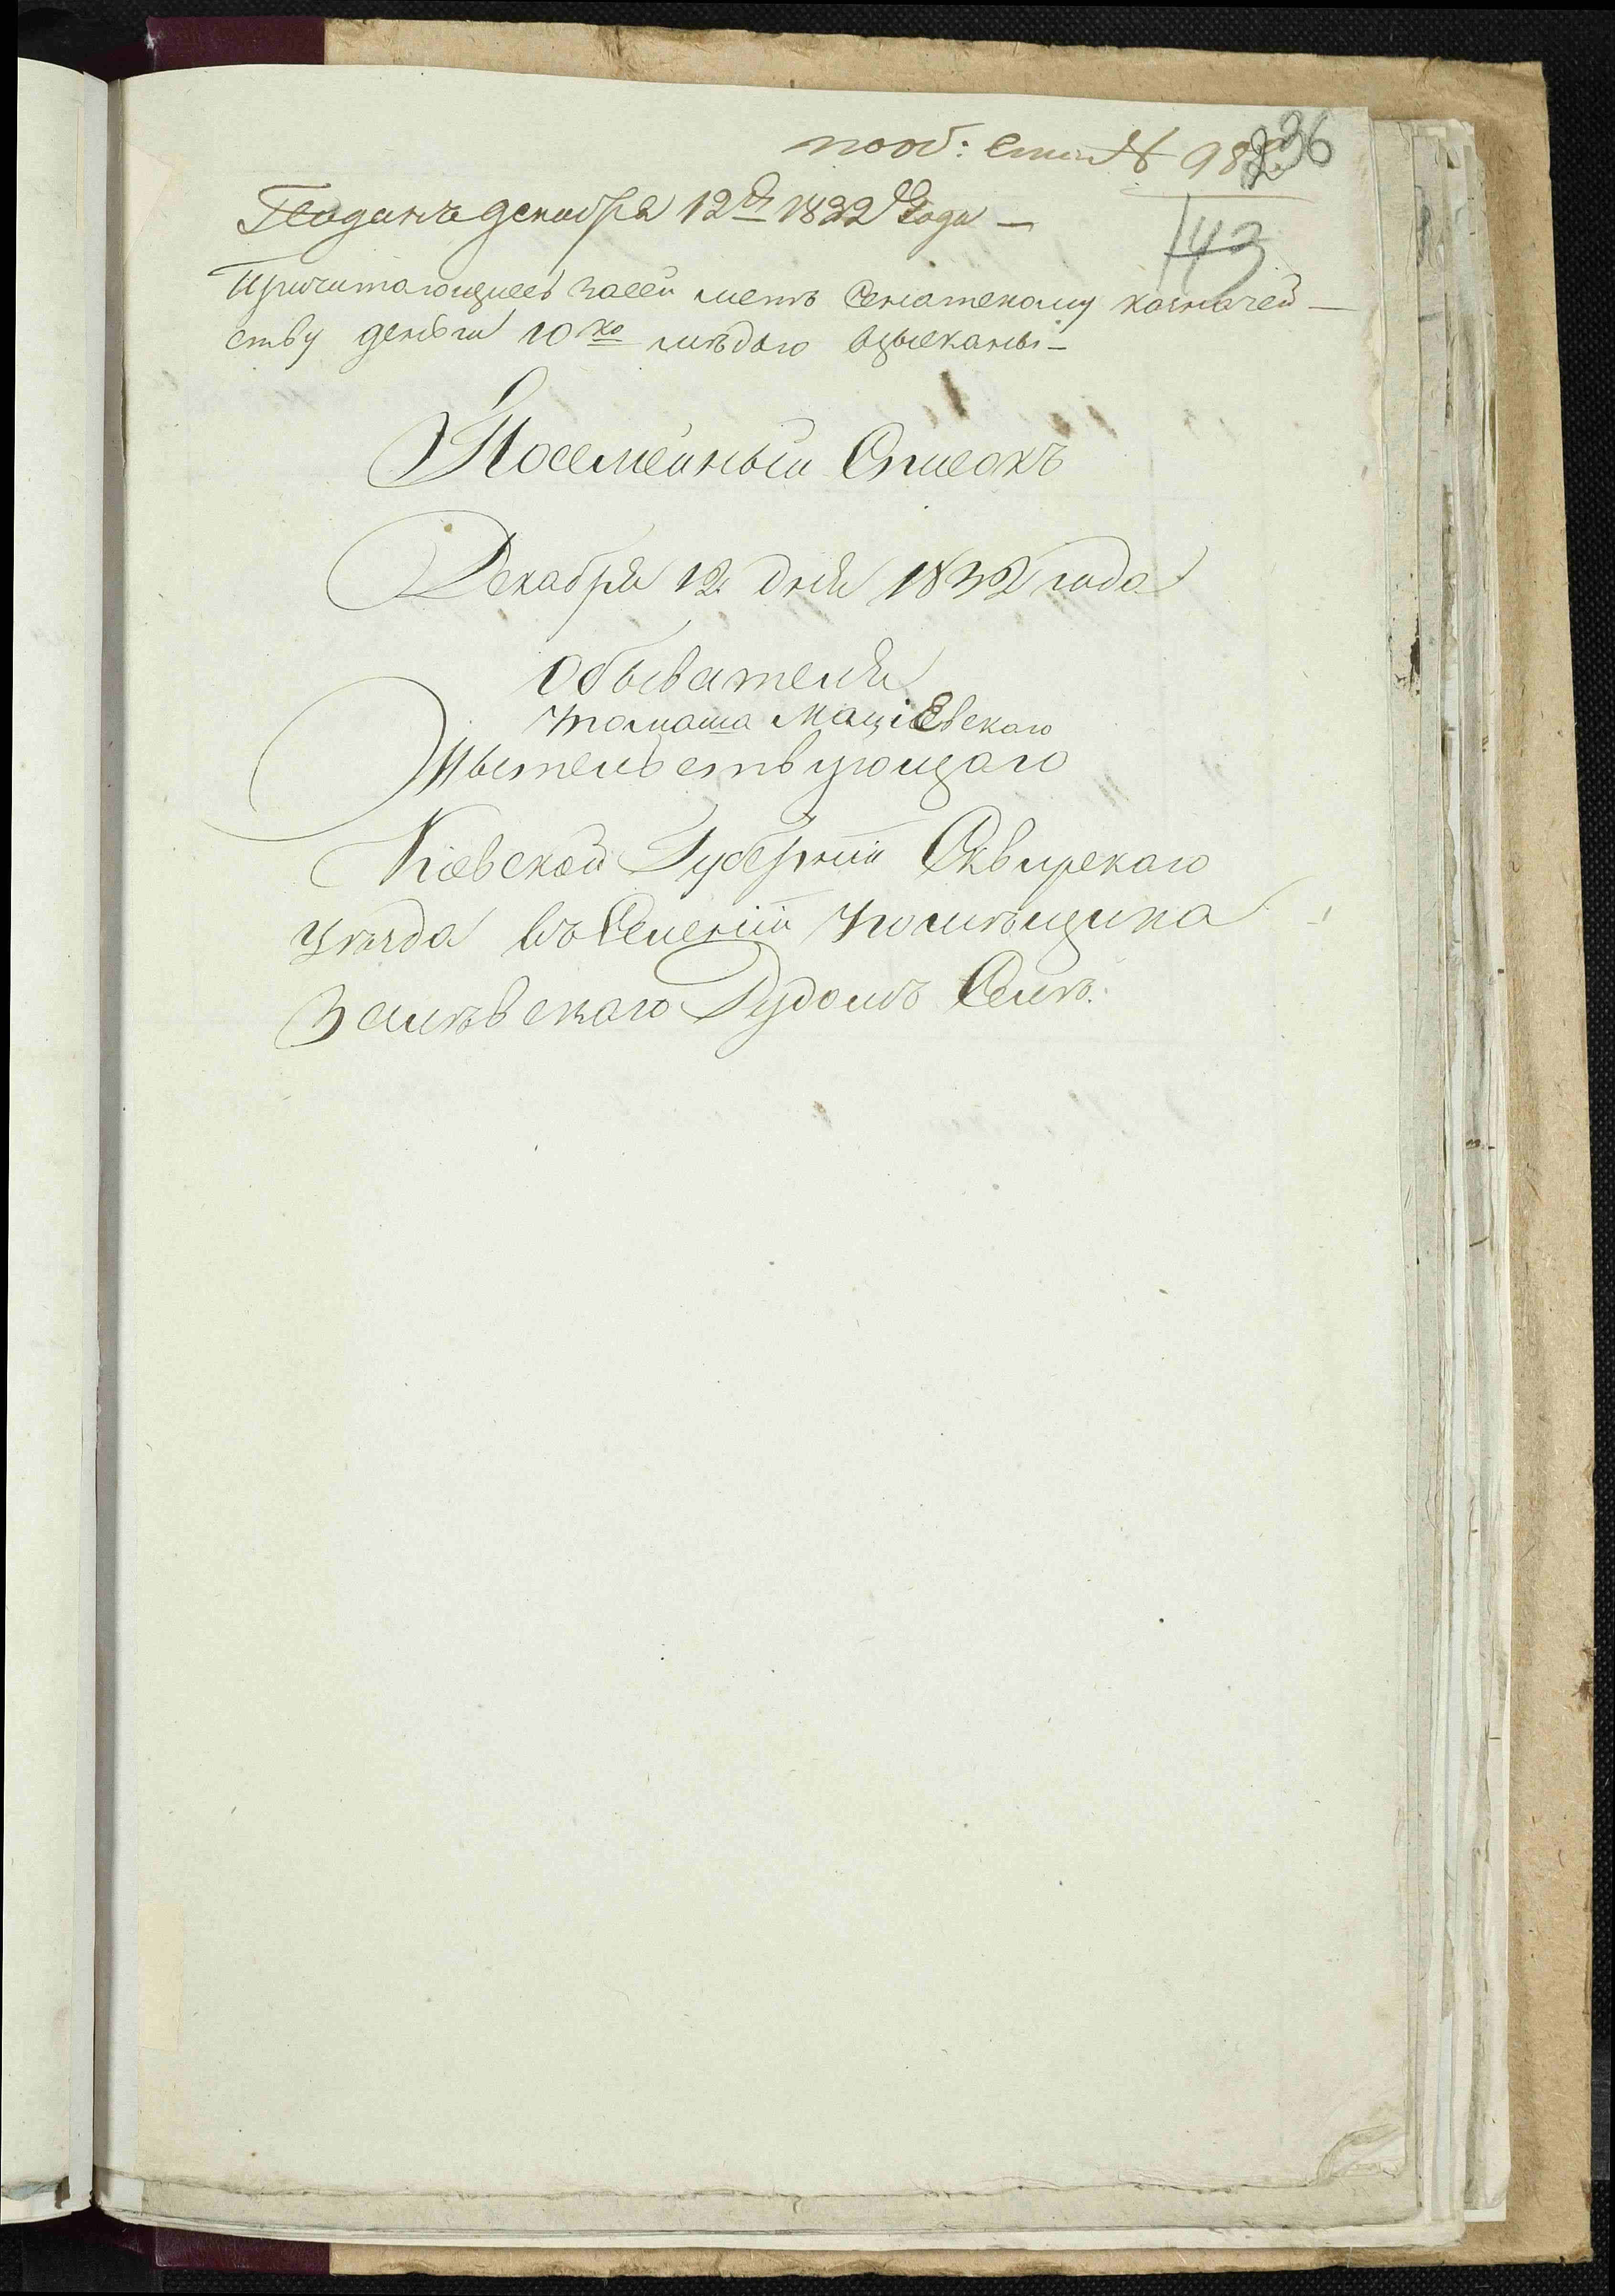 236
143
Поданъ декабря 12го 1832 года —
Причитающиеся засей листъ Сенатскому казначей-
ству деньги 10 ко мѣдью взысканы —
Посемейный Списокъ
Декабря 12 дня 1832 года
Обывателя
Томаша Маціевскаго
Жытельствующаго
Кіевской Губерніи Сквирскаго
Уѣзда въ Селеніи помѣщика
Залѣвскаго Селѣ